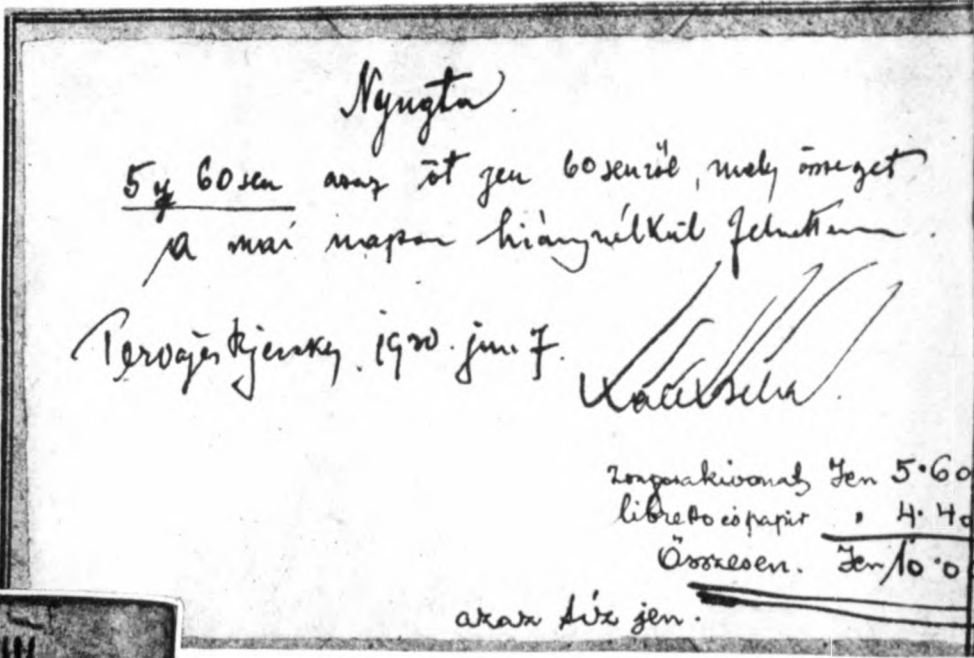 Nyugta
5 y 60 sen azaz öt jen 60 senről, mely összeget
a mai napon hiánynélkül felvettem.
Pervája Rjecska, 1920. jun. 7.
Zongorakivonat Jen 5·60
libretto és papir " 4·40
Összesen. Jen 10·0
azaz tíz jen.